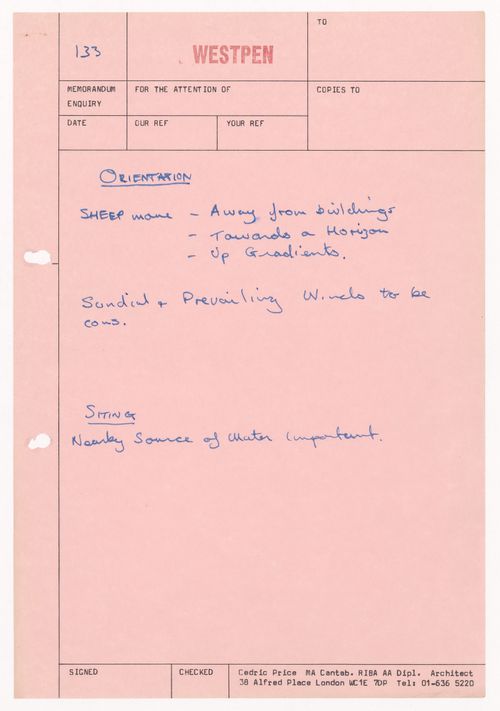 TO
133
WESTPEN
MEMORANDUM
ENQUIRY
FOR THE ATTENTION OF
COPIES TO
DATE
OUR REF
YOUR REF
ORIENTATION
SHEEP move - Away from buildings
- Towards a Horizon
- Up Gradients.
Sundial + Prevailing Winds to be
cons.
SITING
Nearby Source of Water important.
SIGNED
CHECKED
Cedric Price MA Cantab. RIBA AA Dipl. Architect
38 Alfred Place London WC1E 7DP Tel: 01-636 5220